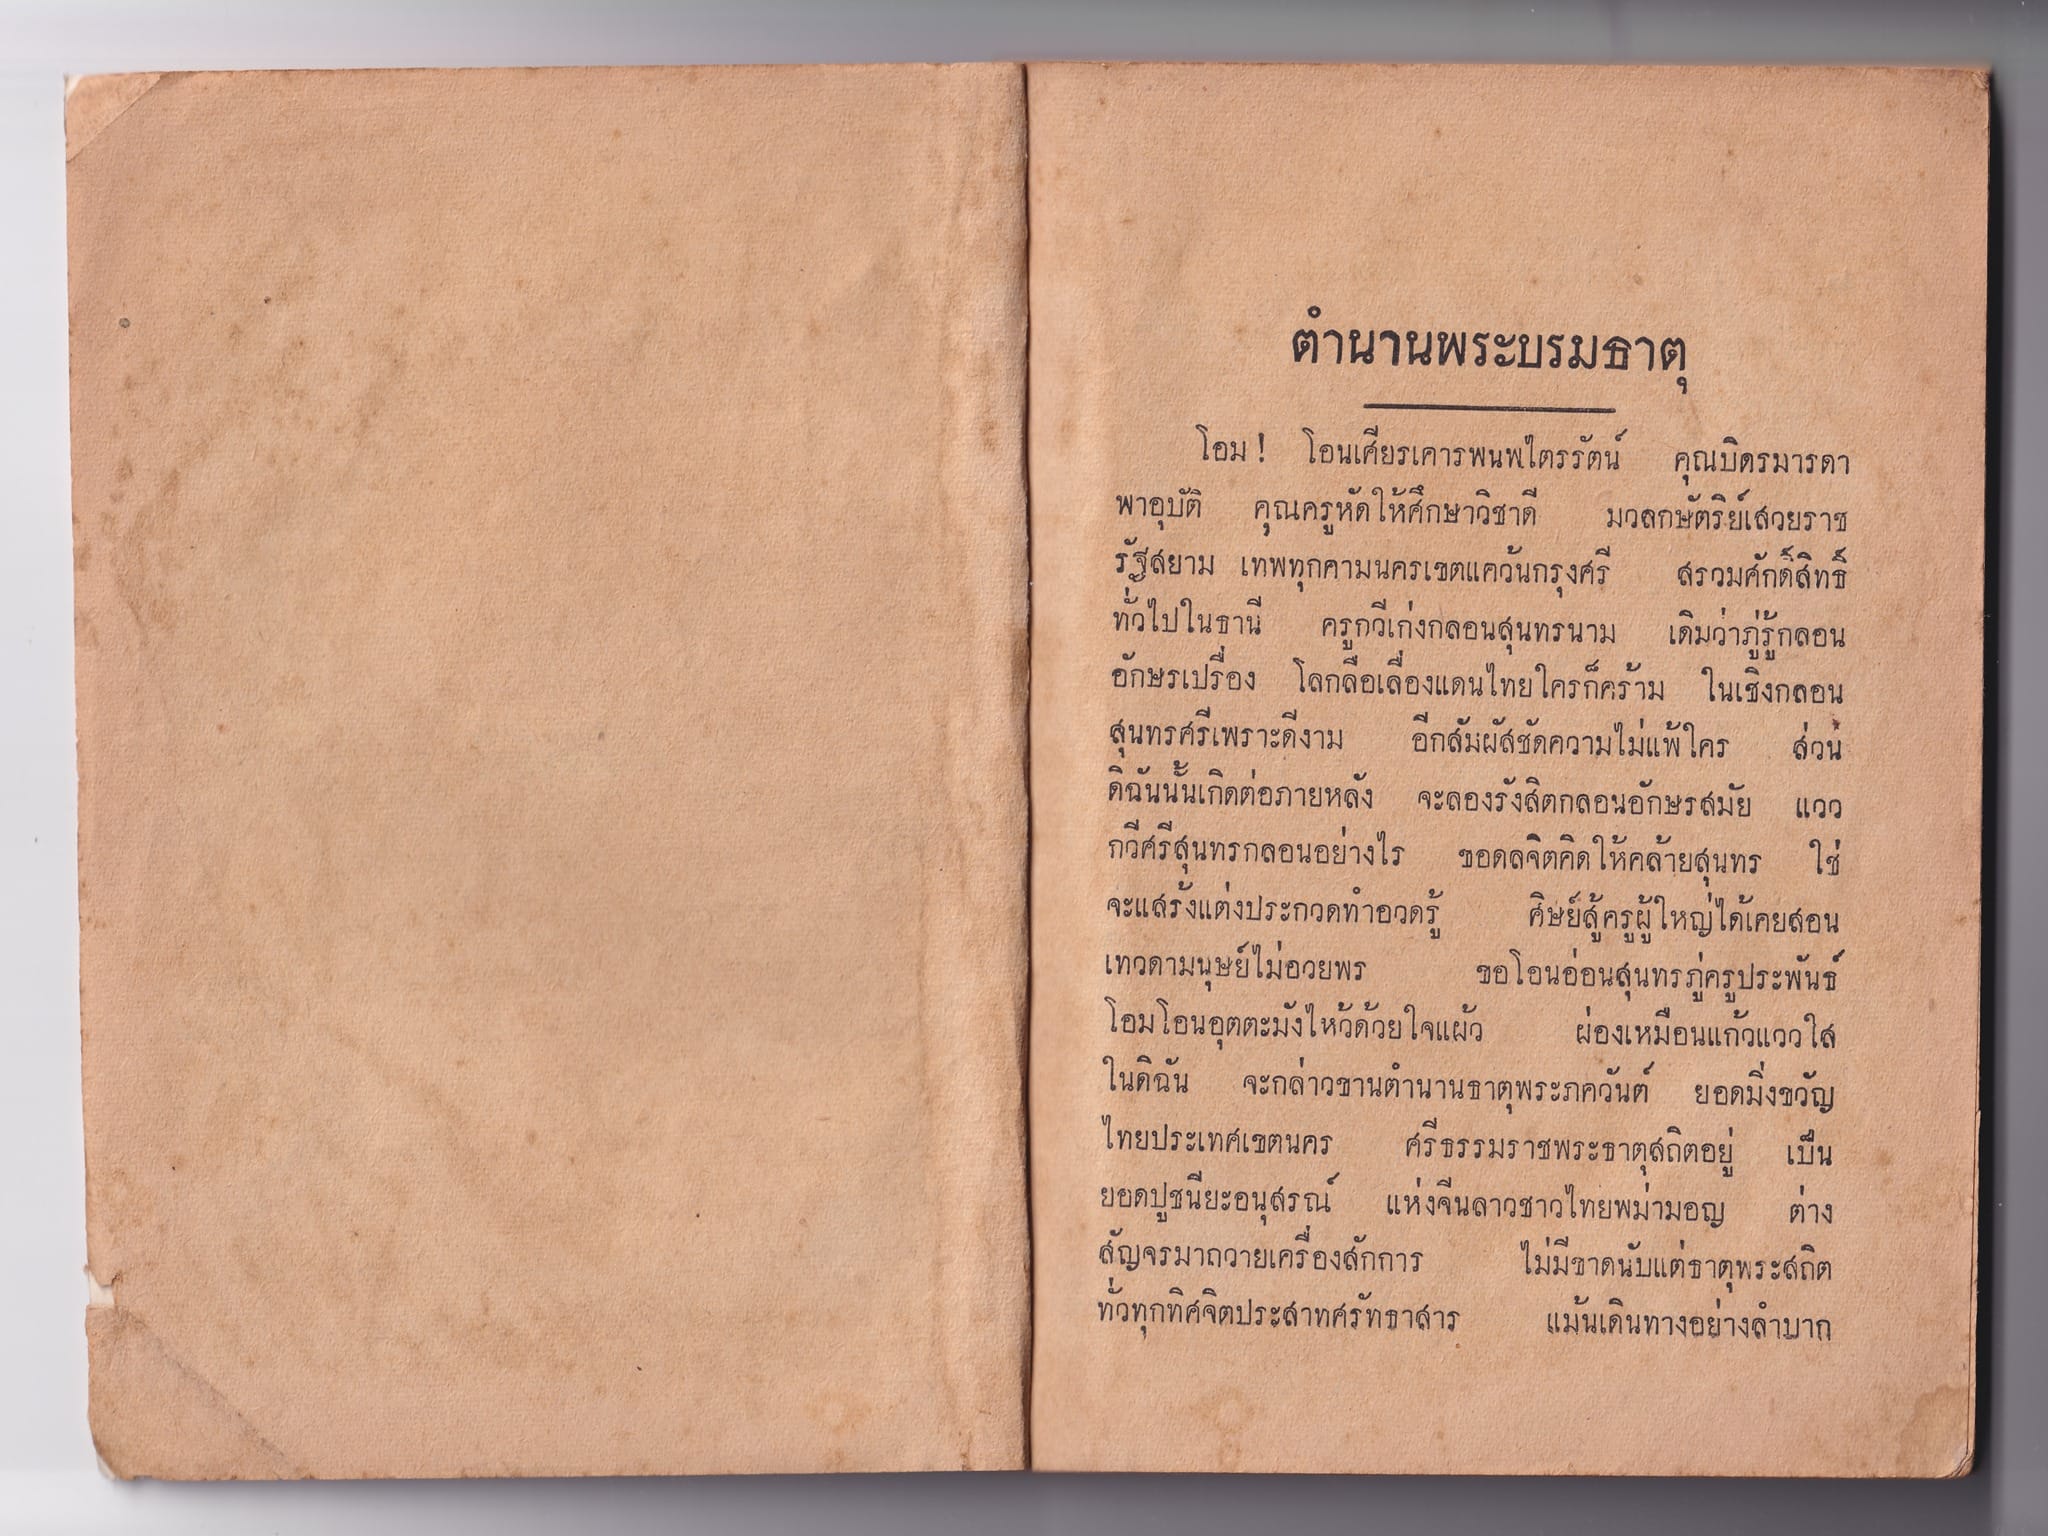 ตำนานพระบรมธาตุ
โอม! โอนเศียรเคารพนพไตรรัตน์ คุณบิดรมารดา
พาอุบัติ คุณครูหัดให้ศึกษาวิชาดี มวลกษัตริย์เสวยราช
รัฐสยาม เทพทุกคามนครเขตแคว้นกรุงศรี สรวมศักดิ์สิทธิ์
ทั่วไปในธานี ครูกวีเก่งกลอนสุนทรนาม เดิมว่าภู่รู้กลอน
อักษรเปรื่อง โลกลือเลื่องแดนไทยใครก็คร้าม ในเชิงกลอน
สุนทรศรีเพราะดีงาม อีกสัมผัสชัดความไม่แพ้ใคร ส่วน
ดิฉันนั้นเกิดต่อภายหลัง จะลองรังสิตกลอนอักษรสมัย แวว
กวีศรีสุนทรกลอนอย่างไร ขอดลจิตคิดให้คล้ายสุนทร ใช่
จะแสร้งแต่งประกวดทำอวดรู้ ศิษย์สู้ครูผู้ใหญ่ได้เคยสอน
เทวดามนุษย์ไม่อวยพร ขอโอนอ่อนสุนทรภู่ครูประพันธ์
โอมโอนอุตตะมังไหว้ด้วยใจแผ้ว ผ่องเหมือนแก้วแววใส
ในดิฉัน จะกล่าวขานตำนานธาตุพระภควันต์ ยอดมิ่งขวัญ
ไทยประเทศเขตนคร ศรีธรรมราชพระธาตุสถิตอยู่ เป็น
ยอดปูชนียะอนุสรณ์ แห่งจีนลาวชาวไทยพม่ามอญ ต่าง
สัญจรมาถวายเครื่องสักการ ไม่มีขาดนับแต่ธาตุพระสถิต
ทั่วทุกทิศจิตประสาทศรัทธาสาร แม้นเดินทางอย่างลำบาก